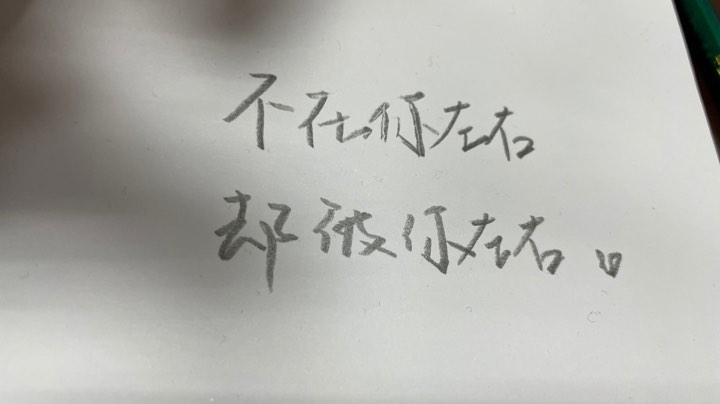 不在你左右
却被你左右。